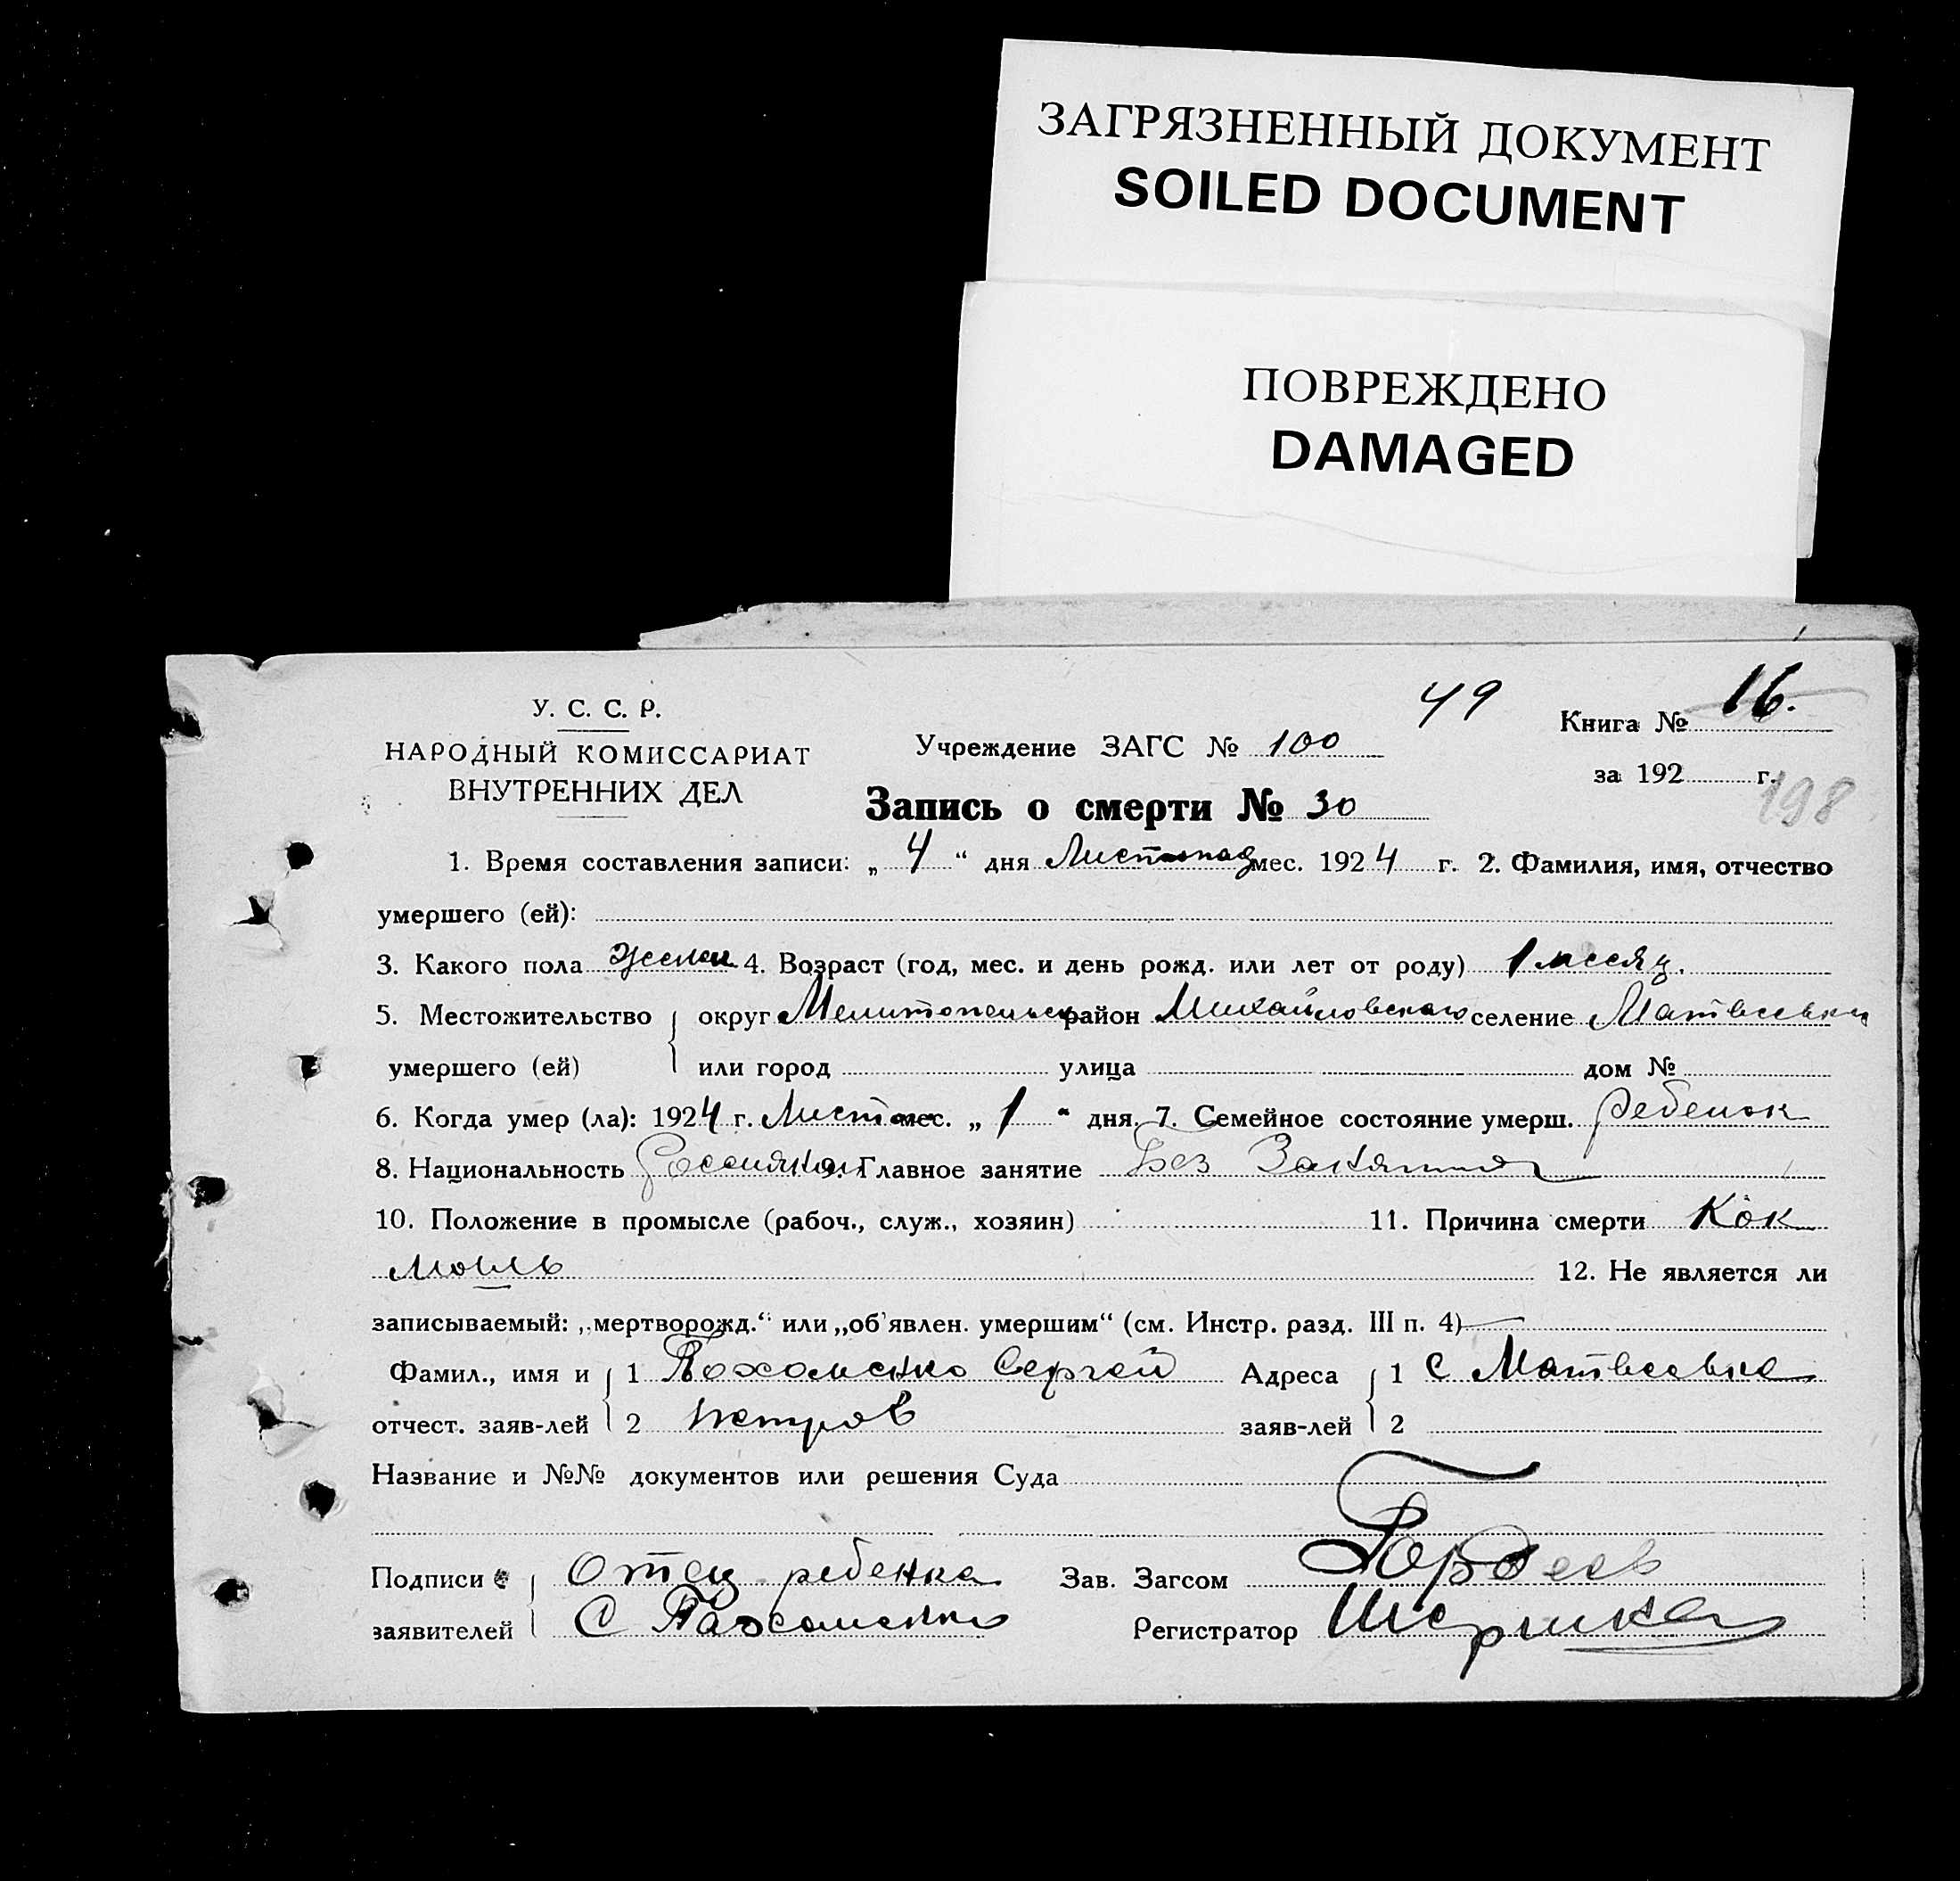 ЗАГРЯЗНЕННЫЙ ДОКУМЕНТ
SOILED DOCUMENT
ПОВРЕЖДЕНО
DAMAGED
У. С. С. Р.
НАРОДНЫЙ КОМИССАРИАТ
ВНУТРЕННИХ ДЕЛ
49
Книга № 16.
Учреждение ЗАГС № 100
за 192 г.
198
Запись о смерти № 30
1. Время составления записи: „ 4 “ дня Листопад мес. 1924 г. 2. Фамилия, имя, отчество
умершего (ей):
3. Какого пола женск 4. Возраст (год, мес. и день рожд. или лет от роду) 1 месяц.
5. Местожительство округ Мелитопольск район Михайловского селение Матвеевки
умершего (ей) или город улица дом №
6. Когда умер (ла): 1924 г. Листопа мес. „ 1 “ дня. 7. Семейное состояние умерш. ребенок
8. Национальность 9. Главное занятие Без Занятия
10. Положение в промысле (рабоч., служ., хозяин) 11. Причина смерти Кок
люшь 12. Не является ли
записываемый: „мертворожд.“ или „об'явлен. умершим“ (см. Инстр. разд. III п. 4)
Фамил., имя и 1 Пахоменко Сергей Адреса 1 С Матвеевка
отчест. заяв-лей 2 петров заяв-лей 2
Название и №№ документов или решения Суда
Подписи Отец ребенка Зав. Загсом Гордеев
заявителей С Пахоменко Регистратор